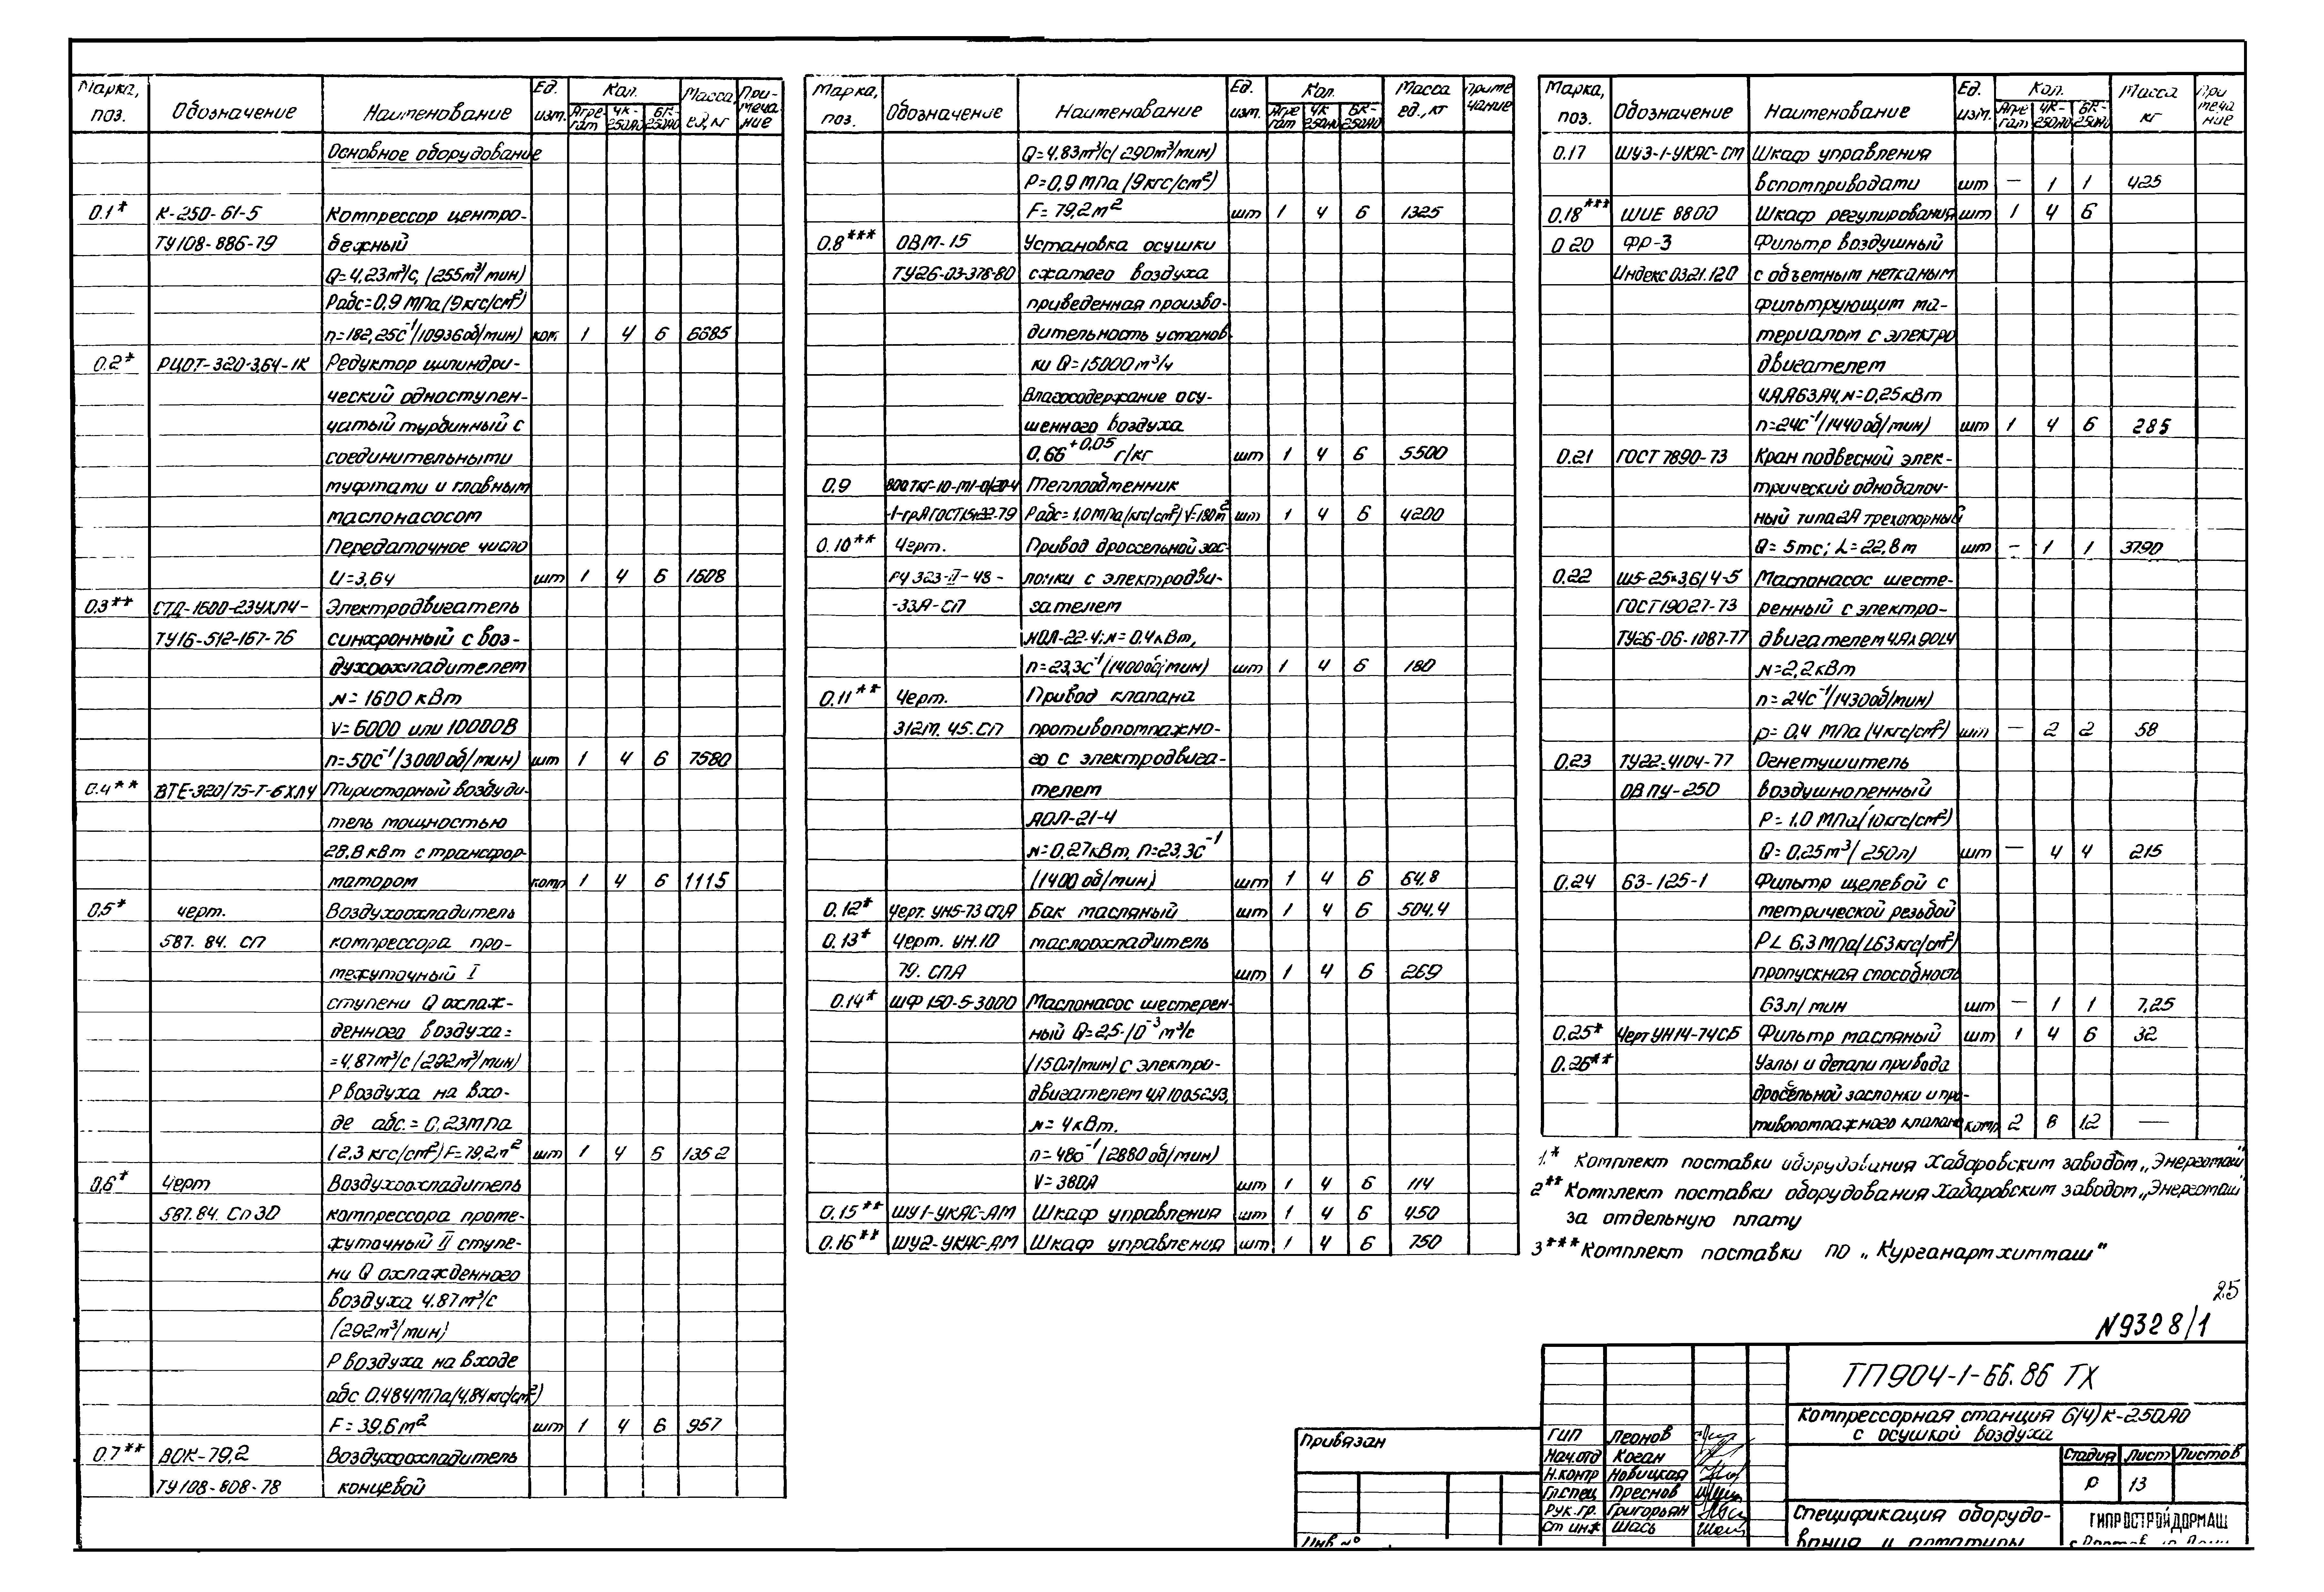 Марка, поз. Обозначение Наименование Ед. изм. Кол. Агрегат 4К-250А0 6К-250А0 Масса, ед, кг Примечание
Основное оборудование
0.1* К-250-61-5 Компрессор центро-
ТУ108-886-79 бежный
Q=4,23м³/с, (255м³/мин)
Рабс=0,9 МПа (9кгс/см²)
n=182,25с⁻¹ (10936об/мин) ком. 1 4 6 6685
0.2* РЦОТ-320-3,64-1К Редуктор цилиндри-
ческий одноступен-
чатый турбинный с
соединительными
муфтами и главным
маслонасосом
Передаточное число
U=3,64 шт 1 4 6 1608
0.3** СТД-1600-23УХЛ4- Электродвигатель
ТУ16-512-167-76 синхронный с воз-
духоохладителем
N=1600 кВт
V=6000 или 10000В
n=50с⁻¹ (3000об/мин) шт 1 4 6 7580
0.4** ВТЕ-320/75-Т-6ХЛ4 Тиристорный возбуди-
тель мощностью
28,8 кВт с трансфор-
матором комп 1 4 6 1115
0,5* Черт. Воздухоохладитель
587. 84. СП компрессора про-
межуточный I
ступени Q охлаж-
денного воздуха=
=4,87м³/с (292м³/мин)
Р воздуха на вхо-
де абс.= 0,23мпа
(2,3 кгс/см²) F=79,2м² шт 1 4 6 1352
0,6* Черт Воздухоохладитель
587.84. Сп3D компрессора проме-
жуточный II ступе-
ни Q охлажденного
воздуха 4.87м³/с
(292м³/мин)
Р воздуха на входе
абс 0.484МПа(4,84кгс/см²)
F=39,6м² шт 1 4 6 957
0.7** ВОК-79,2 Воздухоохладитель
ТУ108-808-78 концевой
Марка, поз. Обозначение Наименование Ед. изм. Кол. Агрегат 4К 250А0 6К-250А0 Масса ед., кг Примечание
Q=4,83м³/с(290м³/мин)
Р=0,9 МПа (9кгс/см²)
F=79,2м² шт 1 4 6 1325
0.8*** ОВМ-15 Установка осушки
ТУ26-03-378-80 сжатого воздуха
приведенная произво-
дительность установ-
ки Q=15000м³/ч
Влагосодержание осу-
шенного воздуха
0,66 +0,05 г/кг шт 1 4 6 5500
0.9 800ТКГ-10-М1-0/20-4 Теплообменник
-1-гр.А ГОСТ15122-79 Рабс=1,0МПа(кгс/см²) F=180м² шт 1 4 6 4200
0.10** Черт. Привод дроссельной зас-
РУ 323-II-48- лонки с электродви-
-33А-СП гателем
АОЛ-22-4; N=0.4кВт,
n=23,3с⁻¹ (1400об/мин) шт 1 4 6 180
0.11** Черт. Привод клапана
312М. 45. СП противопомпажно-
го с электродвига-
телем
АОЛ-21-4
N=0,27кВт, n=23,3с⁻¹
(1400 об/мин) шт 1 4 6 64.8
0.12* Черт. УН5-73 СПА Бак масляный шт 1 4 6 504.4
0.13* Черт. УН.10 маслоохладитель
79. СПА шт 1 4 6 269
0.14* ШФ 150-5-3000 Маслонасос шестерен-
ный Q=2,5·10⁻³ м³/с
(150л/мин) с электро-
двигателем 4А100S2У3,
N=4кВт.
n=480⁻¹ (2880 об/мин)
V=380А шт 1 4 6 114
0.15** ШУ1-УКАС-АМ Шкаф управления шт 1 4 6 450
0.16** ШУ2-УКАС-АМ Шкаф управления шт. 1 4 6 750
Марка, поз. Обозначение Наименование Ед. изм. Кол. Агрегат 4К-250А0 6К-250А0 Масса кг Примечание
0.17 ШУЗ-1-УКАС-СМ Шкаф управления
вспомприводами шт — 1 1 425
0,18*** ШИЕ 8800 Шкаф регулирования шт 1 4 6
0.20 ФР-3 Фильтр воздушный
Индекс 0321.120 с объемным нетканым
фильтрующим ма-
териалом с электро
двигателем
4АА63А4, N=0,25кВт
n=24с⁻¹ (1440об/мин) шт 1 4 6 285
0.21 ГОСТ 7890-73 Кран подвесной элек-
трический однобалоч-
ный типа 2А трехопорный
Q=5тс; L=22,8м шт - 1 1 3790
0.22 Ш5-25*3,6/4-5 Маслонасос шесте-
ГОСТ19027-73 ренный с электро-
ТУ26-06-1087-77 двигателем 4АХ90L4
N=2,2кВт
n=24с⁻¹ (1430об/мин)
р=0,4 МПа (4кгс/см²) шт — 2 2 58
0.23 ТУ22-4104-77 Огнетушитель
ОВПУ-250 воздушнопенный
Р=1.0 МПа (10кгс/см²)
Q=0,25м³(250л) шт — 4 4 215
0.24 63-125-1 Фильтр щелевой с
метрической резьбой
Р∠6,3МПа(∠63кгс/см²)
пропускная способность
63л/мин шт — 1 1 7,25
0.25* Черт УН14-74СБ Фильтр масляный шт 1 4 6 32
0.26** Узлы и детали привода
дросельной заслонки и про-
тивопомпажного клапана комп 2 8 12 —
1.* Комплект поставки оборудования Хабаровским заводом „Энергомаш"
2** Комплект поставки оборудования Хабаровским заводом „Энергомаш"
за отдельную плату
3*** Комплект поставки ПО „Курганармхиммаш"
25
N9328/1
ТП904-1-66.86 ТХ
Компрессорная станция 6(4)К-250А0
с осушкой воздуха
Стадия Лист Листов
Р 13
Спецификация оборудо-
вания и арматуры
ГИПРОСТРОЙДОРМАШ
Привязан
Инв №
ГИП Леонов
Нач.отд Коган
Н.контр Новицкая
Гл.спец Преснов
Рук.гр. Григорьян
Ст инж Шась